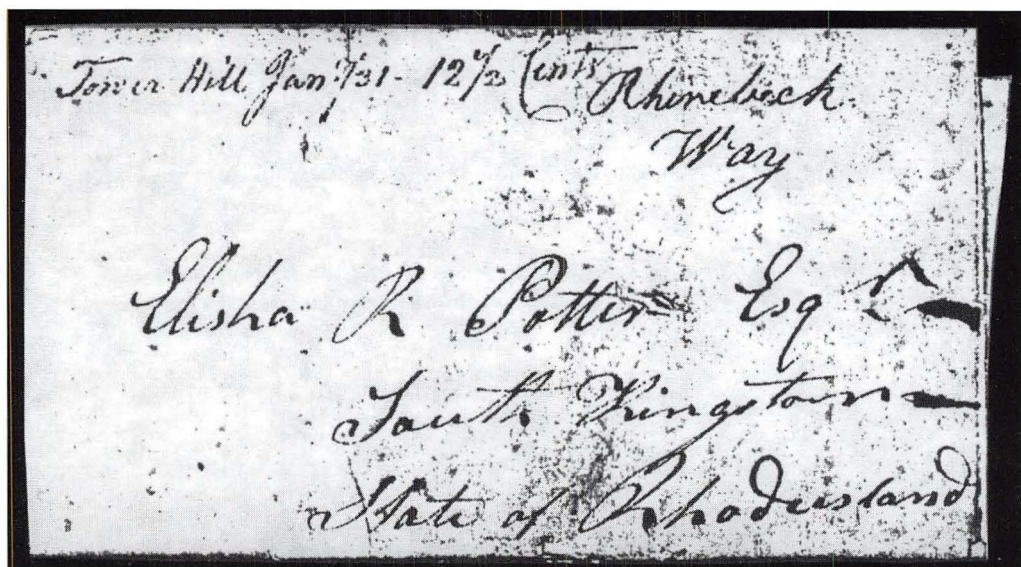 Tower Hill Jany 31 - 12 1/2 Cents Rhinebeck
Way
Elisha R Potter Esqr
South Kingstown
State of Rhodeisland